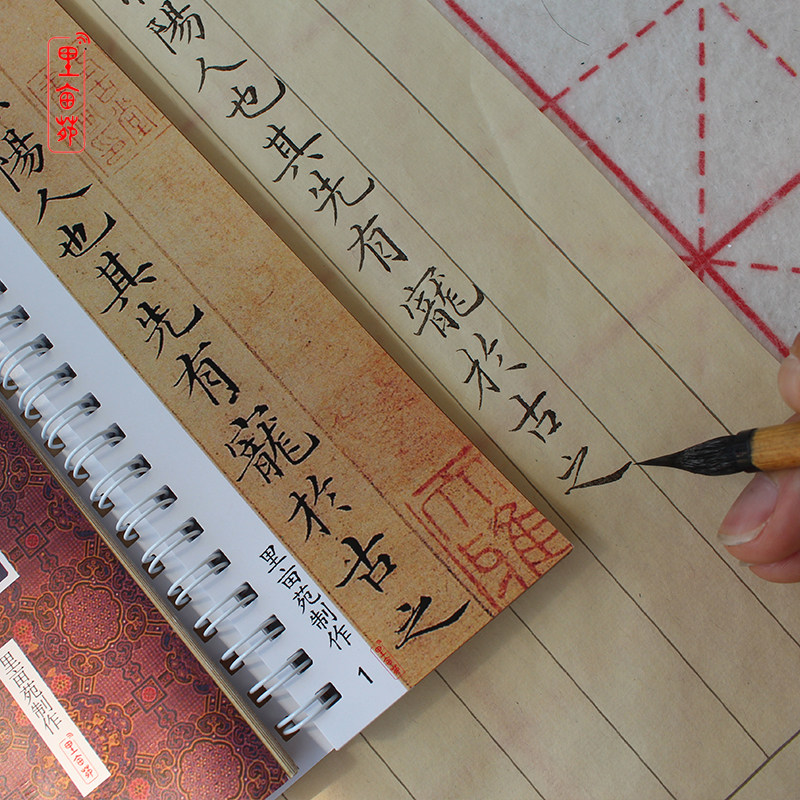 里畝苑
陽人也其先有寵於古之
陽人也其先有寵於古之
里畝苑制作
1
里畝苑制作
里畝苑